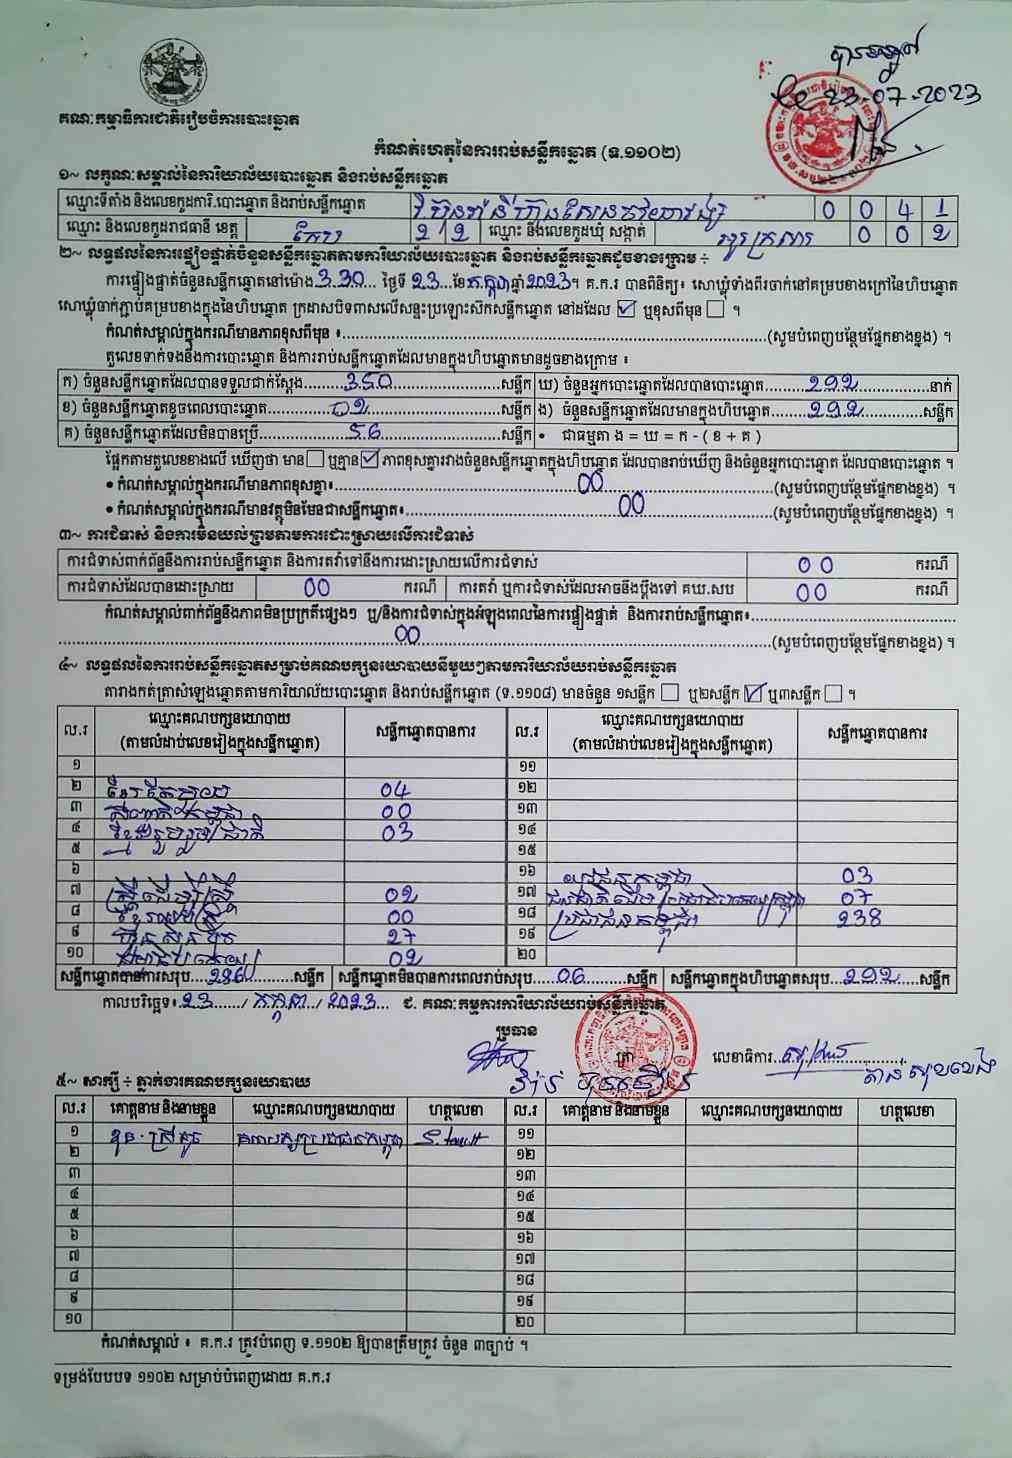 បានឃើញ
23-07-2023
គណៈកម្មាធិការជាតិរៀបចំការបោះឆ្នោត
កំណត់ហេតុនៃការរាប់សន្លឹកឆ្នោត (ទ.១១០២)
១~ លក្ខណៈសម្គាល់នៃការិយាល័យបោះឆ្នោត និងរាប់សន្លឹកឆ្នោត
ឈ្មោះទីតាំង និងលេខកូដការិ.បោះឆ្នោត និងរាប់សន្លឹកឆ្នោត 0 0 4 1
ឈ្មោះ និងលេខកូដរាជធានី ខេត្ត កែប 2 2 ឈ្មោះ និងលេខកូដឃុំ សង្កាត់ អូរក្រសារ 0 0 2
២~ លទ្ធផលនៃការផ្ទៀងផ្ទាត់ចំនួនសន្លឹកឆ្នោតតាមការិយាល័យបោះឆ្នោត និងរាប់សន្លឹកឆ្នោតដូចខាងក្រោម ÷
ការផ្ទៀងផ្ទាត់ចំនួនសន្លឹកឆ្នោតនៅម៉ោង 3.30... ថ្ងៃទី 23...ខែកក្កដាឆ្នាំ2023។ គ.ក.រ បានពិនិត្យ៖ សោឃ្លុំទាំងពីរចាក់នៅគម្របខាងក្រៅនៃហិបឆ្នោត
សោឃ្លុំចាក់ភ្ជាប់គម្របខាងក្នុងនៃហិបឆ្នោត ក្រដាសបិទពាសលើសន្ទះប្រឡោះសៀកសន្លឹកឆ្នោត នៅដដែល ☑ ឬខុសពីមុន ☐ ។
កំណត់សម្គាល់ក្នុងករណីមានភាពខុសពីមុន ៖ (សូមបំពេញបន្ថែមផ្នែកខាងខ្នង) ។
តួលេខទាក់ទងនឹងការបោះឆ្នោត និងការរាប់សន្លឹកឆ្នោតដែលមានក្នុងហិបឆ្នោតមានដូចខាងក្រោម ៖
ក) ចំនួនសន្លឹកឆ្នោតដែលបានទទួលជាក់ស្តែង 350 សន្លឹក ឃ) ចំនួនអ្នកបោះឆ្នោតដែលបានបោះឆ្នោត 292 នាក់
ខ) ចំនួនសន្លឹកឆ្នោតខូចពេលបោះឆ្នោត 02 សន្លឹក ង) ចំនួនសន្លឹកឆ្នោតដែលមានក្នុងហិបឆ្នោត 292 សន្លឹក
គ) ចំនួនសន្លឹកឆ្នោតដែលមិនបានប្រើ 56 សន្លឹក • ជាធម្មតា ង = ឃ = ក - ( ខ + គ )
ផ្អែកតាមតួលេខខាងលើ ឃើញថា មាន ☐ ឬគ្មាន ☑ ភាពខុសគ្នារវាងចំនួនសន្លឹកឆ្នោតក្នុងហិបឆ្នោត ដែលបានរាប់ឃើញ និងចំនួនអ្នកបោះឆ្នោត ដែលបានបោះឆ្នោត ។
• កំណត់សម្គាល់ក្នុងករណីមានភាពខុសគ្នា៖ 00 (សូមបំពេញបន្ថែមផ្នែកខាងខ្នង) ។
• កំណត់សម្គាល់ក្នុងករណីមានវត្ថុមិនមែនជាសន្លឹកឆ្នោត៖ 00 (សូមបំពេញបន្ថែមផ្នែកខាងខ្នង) ។
៣~ ការជំទាស់ និងការមិនយល់ព្រមតាមការដោះស្រាយលើការជំទាស់
ការជំទាស់ពាក់ព័ន្ធនឹងការរាប់សន្លឹកឆ្នោត និងការតវ៉ាទៅនឹងការដោះស្រាយលើការជំទាស់ 00 ករណី
ការជំទាស់ដែលបានដោះស្រាយ 00 ករណី ការតវ៉ា ឬការជំទាស់ដែលអាចនឹងប្តឹងទៅ គឃ.សប 00 ករណី
កំណត់សម្គាល់ពាក់ព័ន្ធនឹងភាពមិនប្រក្រតីផ្សេងៗ ឬ/និងការជំទាស់ក្នុងអំឡុងពេលនៃការផ្ទៀងផ្ទាត់ និងការរាប់សន្លឹកឆ្នោត៖
00 (សូមបំពេញបន្ថែមផ្នែកខាងខ្នង) ។
៤~ លទ្ធផលនៃការរាប់សន្លឹកឆ្នោតសម្រាប់គណបក្សនយោបាយនីមួយៗតាមការិយាល័យរាប់សន្លឹកឆ្នោត
តារាងកត់ត្រាសំឡេងឆ្នោតតាមការិយាល័យបោះឆ្នោត និងរាប់សន្លឹកឆ្នោត (ទ.១១០៨) មានចំនួន ១សន្លឹក ☐ ឬ២សន្លឹក ☑ ឬ៣សន្លឹក ☐ ។
ល.រ ឈ្មោះគណបក្សនយោបាយ (តាមលំដាប់លេខរៀងក្នុងសន្លឹកឆ្នោត) សន្លឹកឆ្នោតបានការ ល.រ ឈ្មោះគណបក្សនយោបាយ (តាមលំដាប់លេខរៀងក្នុងសន្លឹកឆ្នោត) សន្លឹកឆ្នោតបានការ
១ ១១
២ 04 ១២
៣ 00 ១៣
៤ ខ្មែររួបរួមជាតិ 03 ១៤
៥ ១៥
៦ ១៦ យុវជនកម្ពុជា 03
៧ 02 ១៧ 07
៨ 00 ១៨ ប្រជាជនកម្ពុជា 238
៩ ហ៊្វុនស៊ិនប៉ិច 27 ១៩
១០ 02 ២០
សន្លឹកឆ្នោតបានការសរុប 286 សន្លឹក សន្លឹកឆ្នោតមិនបានការពេលរាប់សរុប 06 សន្លឹក សន្លឹកឆ្នោតក្នុងហិបឆ្នោតសរុប 292 សន្លឹក
កាលបរិច្ឆេទ៖ 23 / កក្កដា / 2023 ជ. គណៈកម្មការការិយាល័យរាប់សន្លឹកឆ្នោត
ប្រធាន
ត្រា លេខាធិការ
៥~ សាក្សី ÷ ភ្នាក់ងារគណបក្សនយោបាយ
ល.រ គោត្តនាម និងនាមខ្លួន ឈ្មោះគណបក្សនយោបាយ ហត្ថលេខា ល.រ គោត្តនាម និងនាមខ្លួន ឈ្មោះគណបក្សនយោបាយ ហត្ថលេខា
១ គណបក្សប្រជាជនកម្ពុជា ១១
២ ១២
៣ ១៣
៤ ១៤
៥ ១៥
៦ ១៦
៧ ១៧
៨ ១៨
៩ ១៩
១០ ២០
កំណត់សម្គាល់ ៖ គ.ក.រ ត្រូវបំពេញ ទ.១១០២ ឱ្យបានត្រឹមត្រូវ ចំនួន ៣ច្បាប់ ។
ទម្រង់បែបបទ ១១០២ សម្រាប់បំពេញដោយ គ.ក.រ